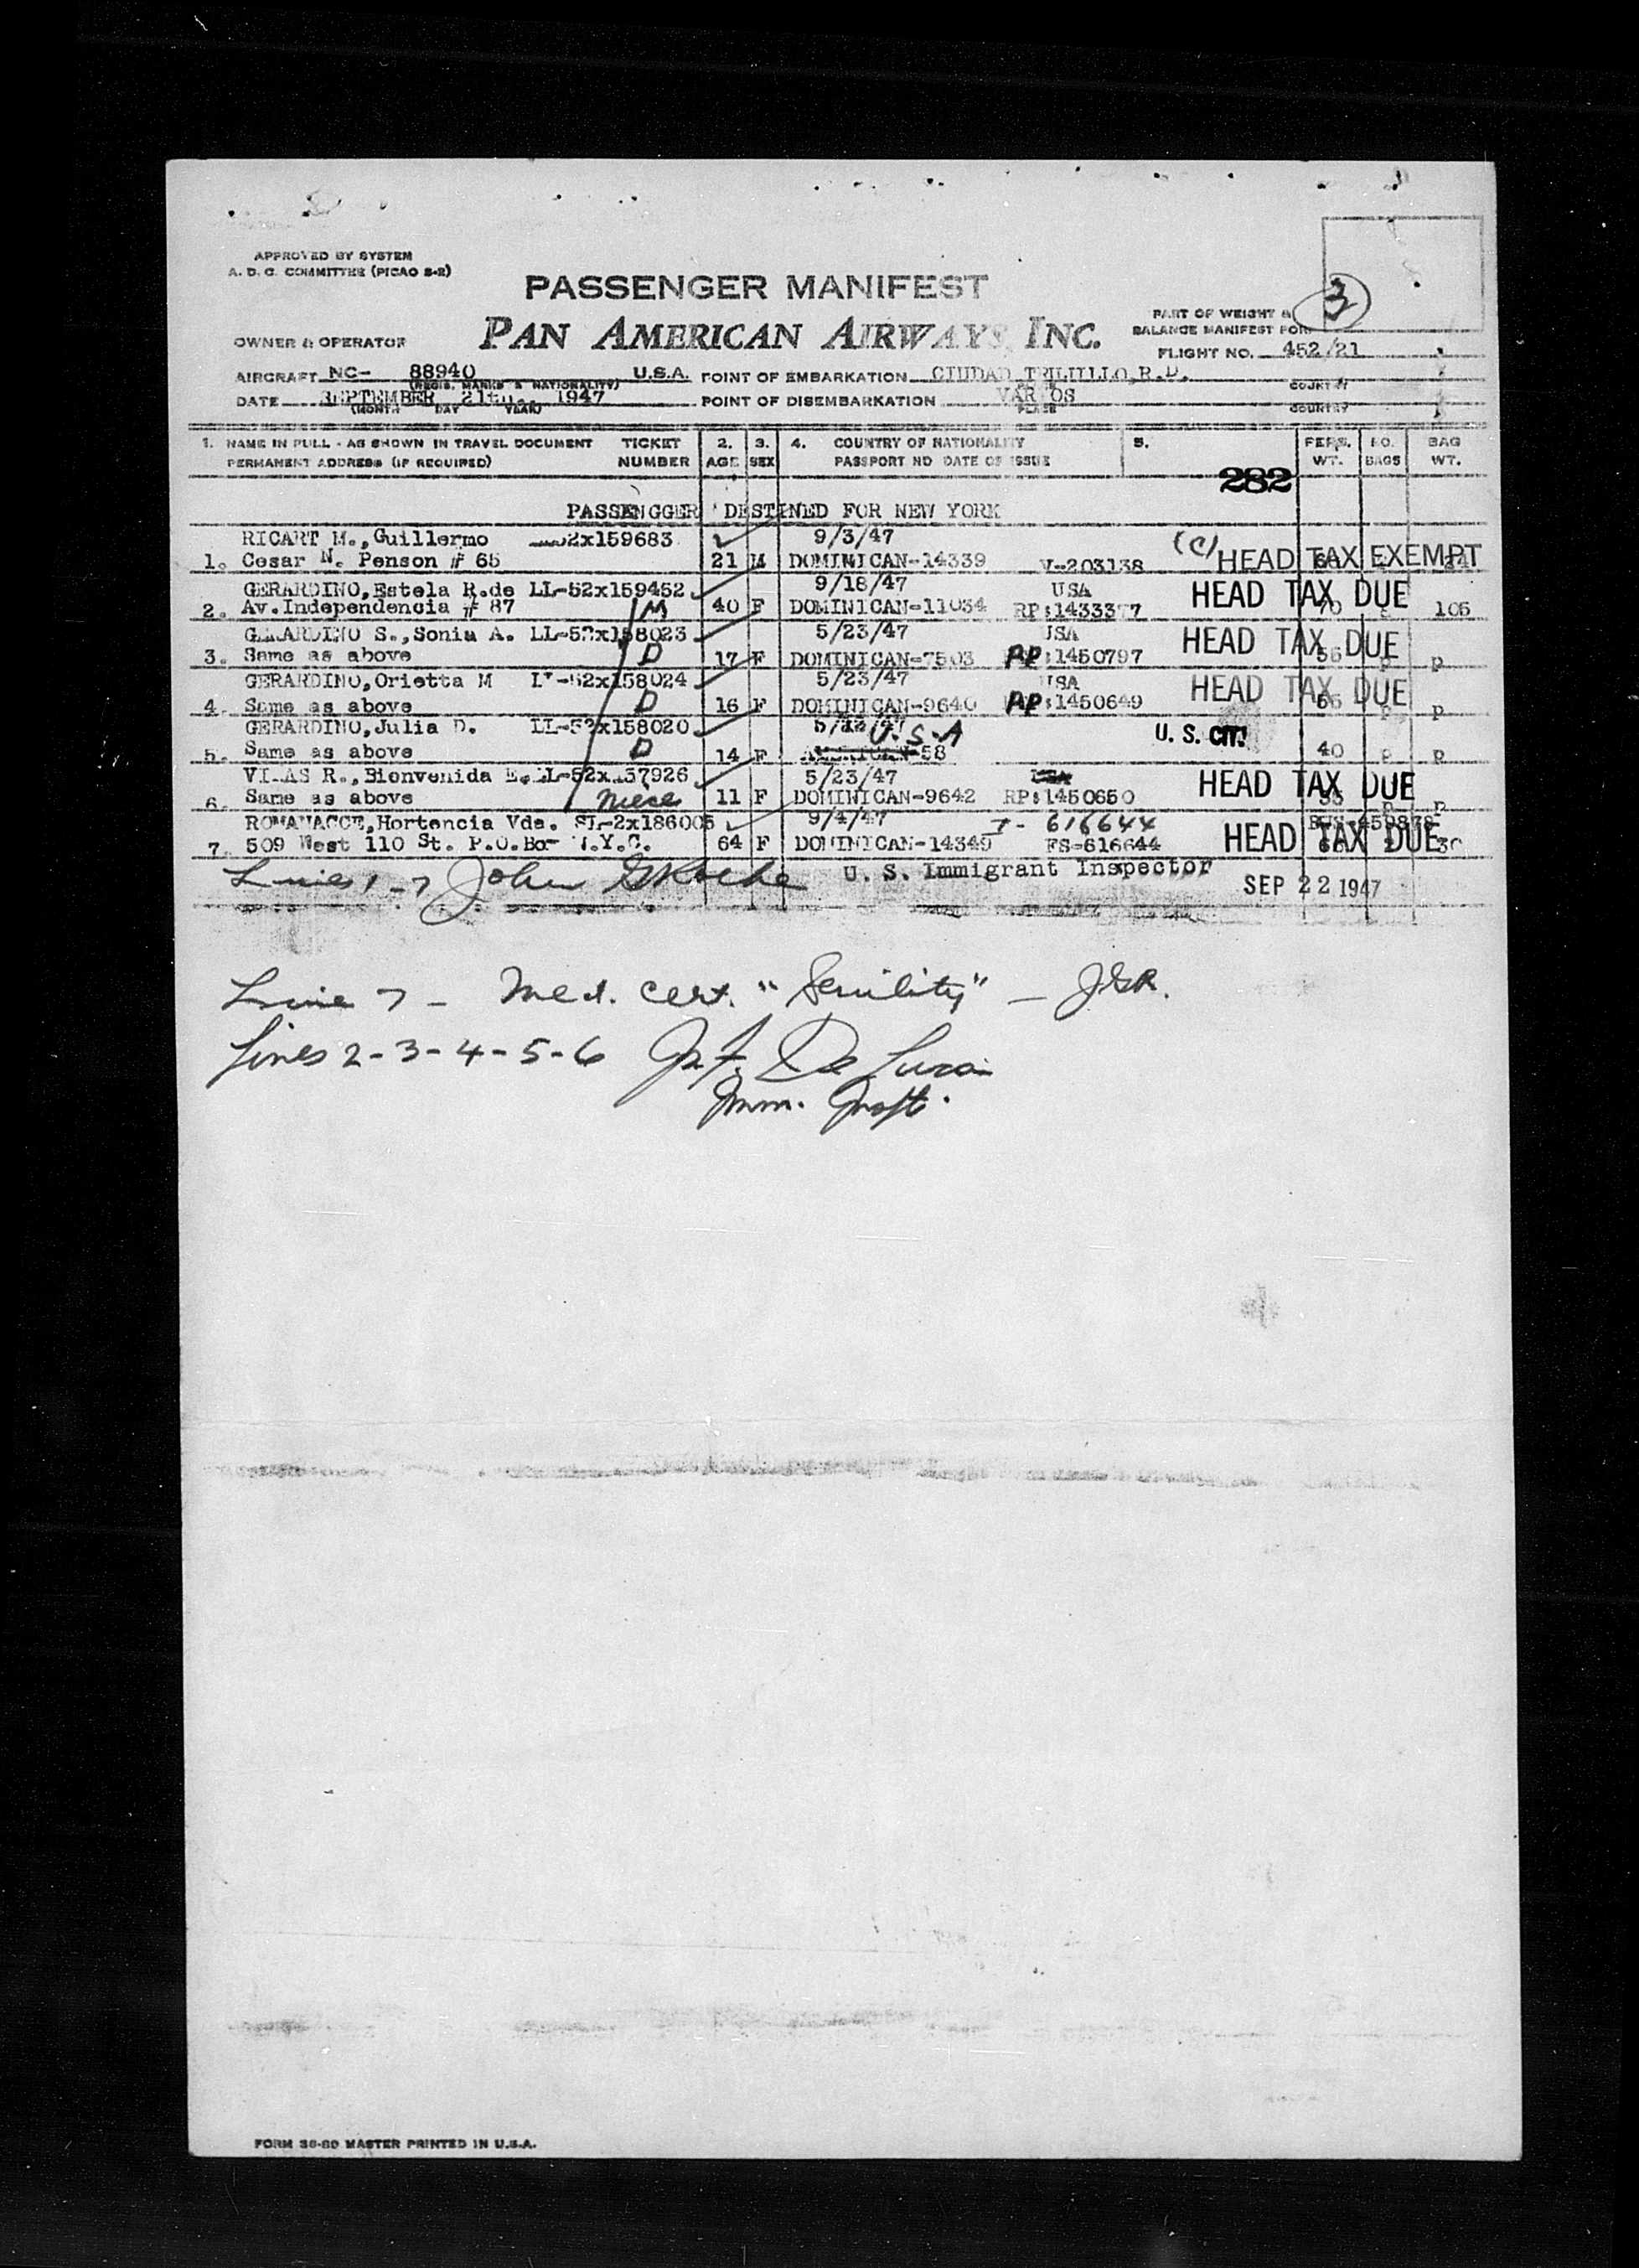 APPROVED BY SYSTEM
A. D. C. COMMITTEE (PICAO S-2)
PASSENGER MANIFEST
3
OWNER & OPERATOR
PAN AMERICAN AIRWAYS, INC.
PART OF WEIGHT &
BALANCE MANIFEST FOR
FLIGHT NO. 452/21
AIRCRAFT NC- 88940 U.S.A. POINT OF EMBARKATION CIUDAD TRUJILLO, R.D.
(REGIS. MARKS & NATIONALITY) COUNTRY
DATE SEPTEMBER 21th., 1947 POINT OF DISEMBARKATION VARIOS
(MONTH DAY YEAR) PLACE COUNTRY
1. NAME IN FULL - AS SHOWN IN TRAVEL DOCUMENT TICKET 2. 3. 4. COUNTRY OF NATIONALITY 5. PERS. NO. BAG
PERMANENT ADDRESS (IF REQUIRED) NUMBER AGE SEX PASSPORT NO DATE OF ISSUE WT. BAGS WT.
282
PASSENGGER DESTINED FOR NEW YORK
RICART M., Guillermo 2x159683 9/3/47
1. Cesar N. Penson # 65 21 M DOMINICAN-14339 V-203138 (C) HEAD TAX EXEMPT
GERARDINO, Estela R.de LL-52x159452 9/18/47 USA HEAD TAX DUE
2. Av.Independencia # 87 M 40 F DOMINICAN-11034 RP:1433377 70 105
GERARDINO S., Sonia A. LL-52x158023 5/23/47 USA HEAD TAX DUE
3. Same as above D 17 F DOMINICAN-7503 RP:1450797 56 p p
GERARDINO, Orietta M 52x158024 5/23/47 USA HEAD TAX DUE
4. Same as above D 16 F DOMINICAN-9640 RP:1450649 56 p p
GERARDINO, Julia D. LL-52x158020 U.S.A U. S. CIT.
5. Same as above D 14 F 58 40 p p
VILAS R., Bienvenida E. LL-52x137926 5/23/47 USA HEAD TAX DUE
6. Same as above niece 11 F DOMINICAN-9642 RP:1450650 p p
ROMANACCE, Hortencia Vda. SL-2x186005 9/4/47 T- 616644
7. 509 West 110 St. P.O.Bo- N.Y.C. 64 F DOMINICAN-14349 FS-616644 HEAD TAX DUE
Lines 1-7 John G Roche U. S. Immigrant Inspector SEP 22 1947
Line 7 - Med. Cert. "Senility" - JGR.
Lines 2-3-4-5-6 De Luca
Imm. Inspt.
FORM 36-80 MASTER PRINTED IN U.S.A.